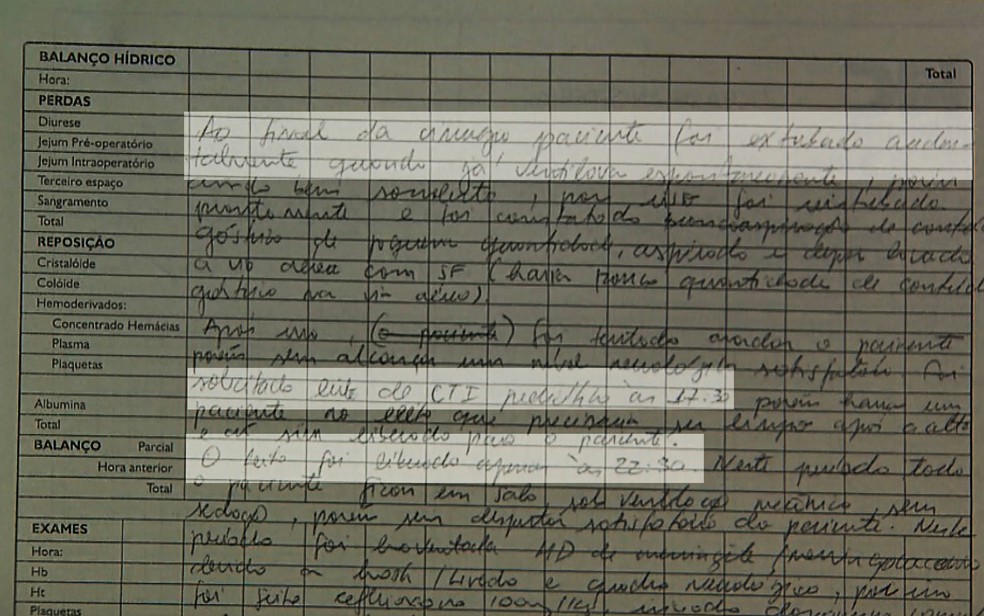 BALANÇO HÍDRICO
Total
Hora:
PERDAS
Diurese
Ao final da cirurgia paciente foi extubado aciden-
Jejum Pré-operatório
talmente quando já ventilava espontaneamente, porém
Jejum Intraoperatório
Terceiro espaço
ainda bem sonolento, por isso foi reintubado
Sangramento
prontamente e foi constatado broncoaspiração de conteúdo
Total
gástrico de pequena quantidade, aspirado e depois lavado
REPOSIÇÃO
a via aérea com SF (havia pouca quantidade de conteúdo
Cristalóide
gástrico na via aérea).
Colóide
Hemoderivados:
Após isso, (o paciente) foi tentado acordar o paciente
Concentrado Hemácias
Plasma
porém sem alcançar um nível neurológico satisfatório. Foi
Plaquetas
solicitado leito de CTI pediátrico às 17:30 porém havia um
Albumina
paciente no leito que precisava ser limpo após a alta
Total
e até ser liberado para o paciente.
BALANÇO Parcial
O leito foi liberado apenas às 22:30. Neste período todo
Hora anterior
o paciente ficou em sala, sob ventilação mecânica, sem
Total
sedação, porém sem despertar satisfatório do paciente. Neste
EXAMES
período foi HD de meningite
Hora:
devido a e quadro neurológico, por isso
Hb
foi feito
Ht
Plaquetas